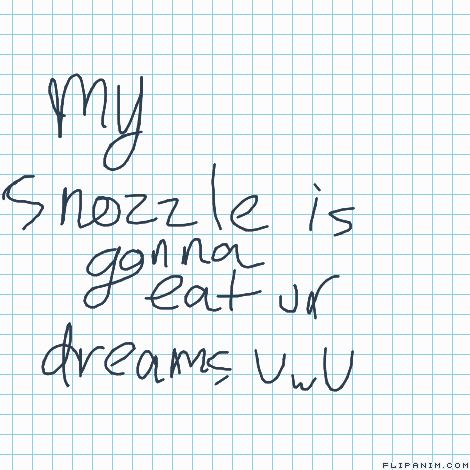 My
Snozzle is
gonna
eat ur
dreams UwU
FLIPANIM.COM